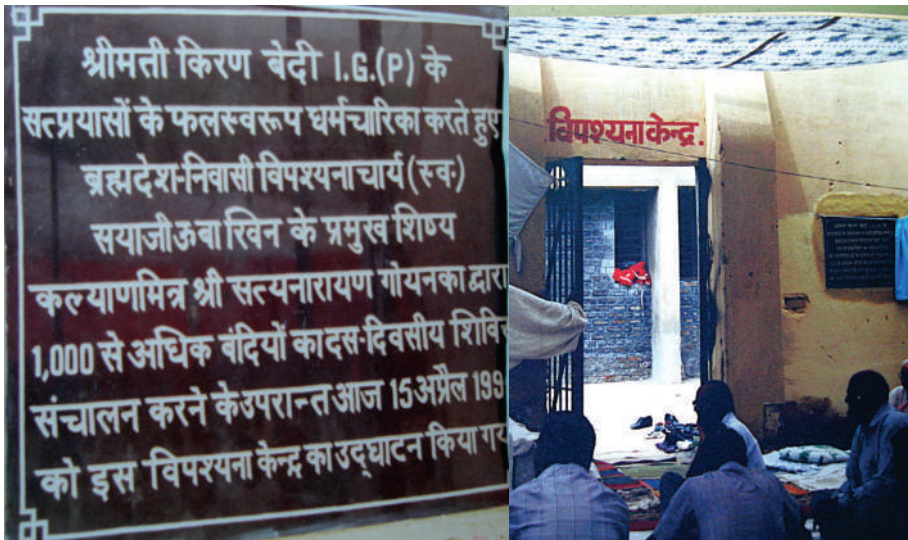 श्रीमती किरण बेदी I.G.(P) के
सत्प्रयासों के फलस्वरूप धर्मचारिका करते हुए
ब्रह्मदेश-निवासी विपश्यनाचार्य (स्व.)
सयाजी ऊ बा खिन के प्रमुख शिष्य
कल्याणमित्र श्री सत्यनारायण गोयनका द्वारा
1,000 से अधिक बंदियों का दस-दिवसीय
संचालन करने के उपरान्त आज 15 अप्रैल
को इस विपश्यना केन्द्र का उद्घाटन किया
विपश्यना केन्द्र.